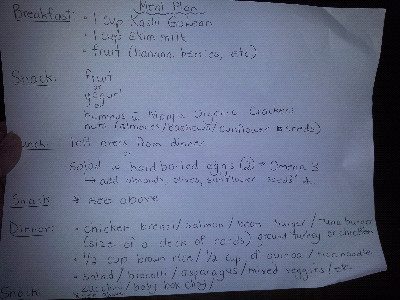 Meal Plan
Breakfast: • 1 cup Kashi GoLean
• 1 cup skim milk
• fruit (banana, berries, etc)
Snack: fruit
or
yogurt
or
hummus & Mary's Organic Crackers
nuts (almonds/cashews/sunflower seeds)
Lunch: left overs from dinner
or
salad w/ hard boiled eggs (2)
→ add almonds, olives, sunflower seeds
Snack * see above
Dinner: • chicken breast/salmon/bean burger/tuna burger
(size of a deck of cards) ground turkey or chicken
• 1/2 cup brown rice/1/2 cup of quinoa/rice noodle
• salad/broccoli/asparagus/mixed veggies/
zucchini/baby bok choy/
Snack: